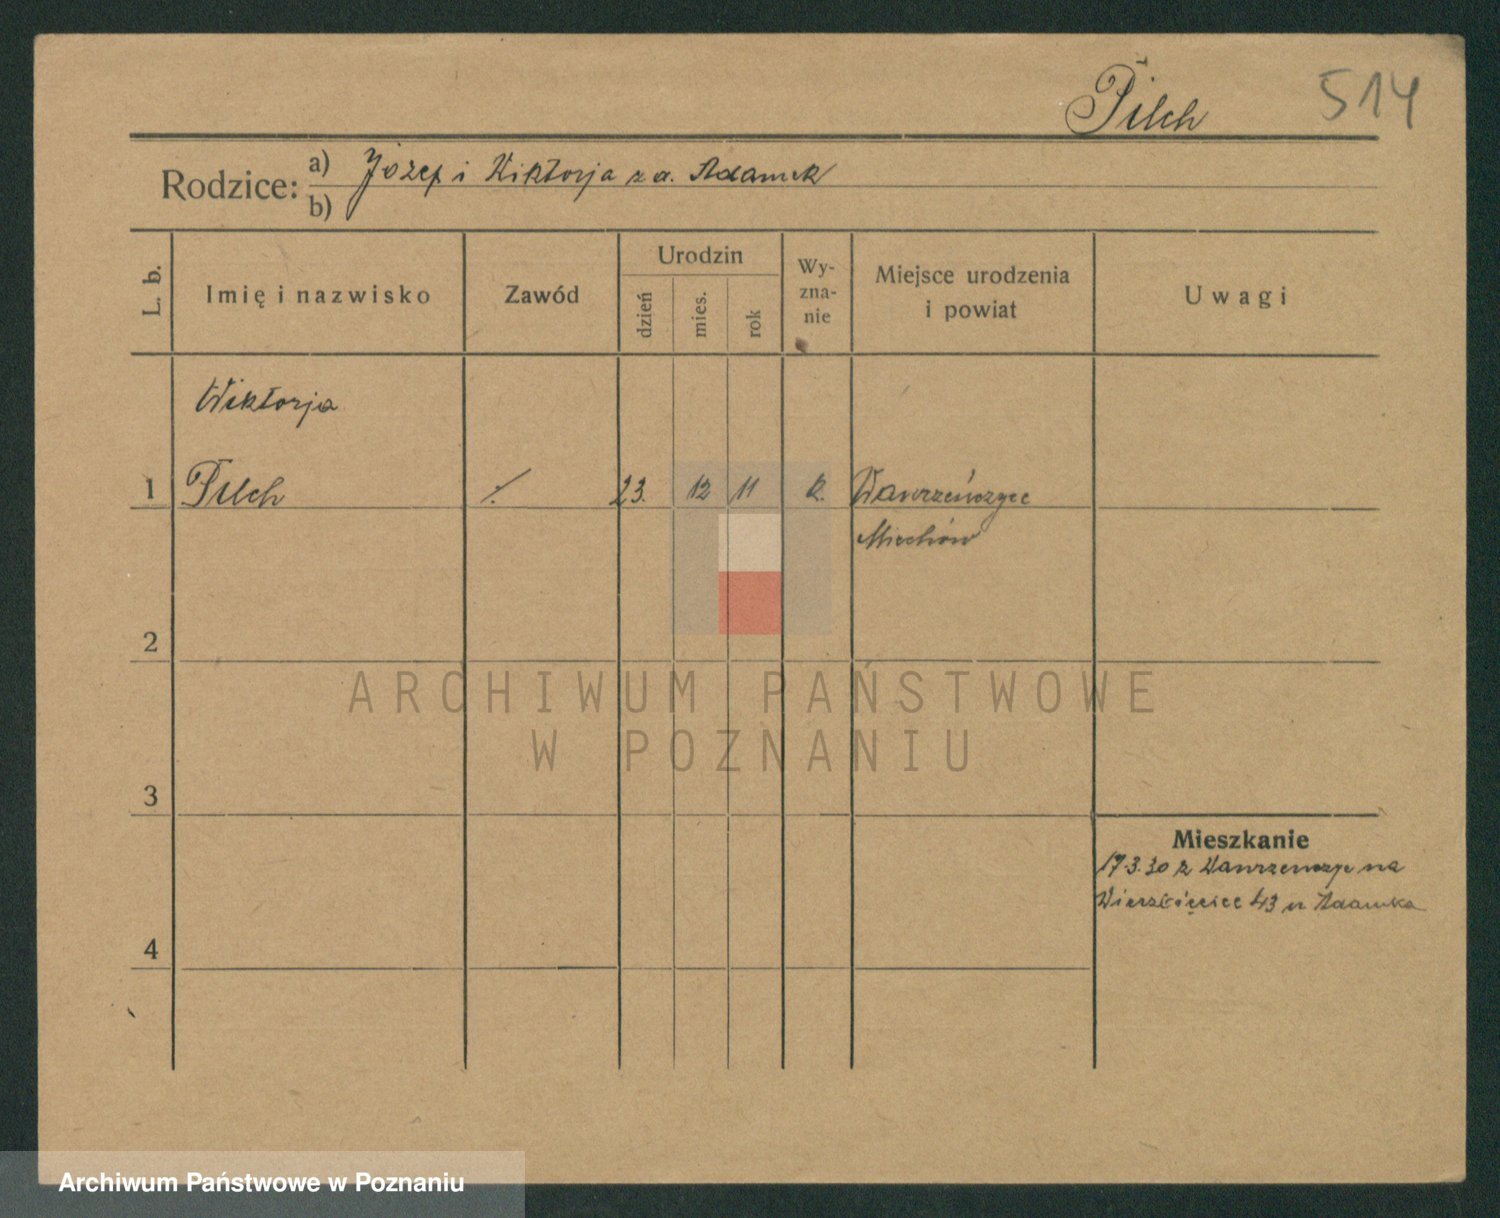 Pilch 514
Rodzice: a) Józef i Wiktorja z d. Adamek
b)
L. b. Imię i nazwisko Zawód Urodzin dzień mies. rok Wy-zna-nie Miejsce urodzenia i powiat Uwagi
Wiktorja
1 Pilch ./. 23. 12 11 k. Wawrzeńczyce
Miechów
2
3
Mieszkanie
17.3.30 z Wawrzenczyc na
Wierzbięcice 43 u Adamka
4
ARCHIWUM PAŃSTWOWE
W POZNANIU
Archiwum Państwowe w Poznaniu